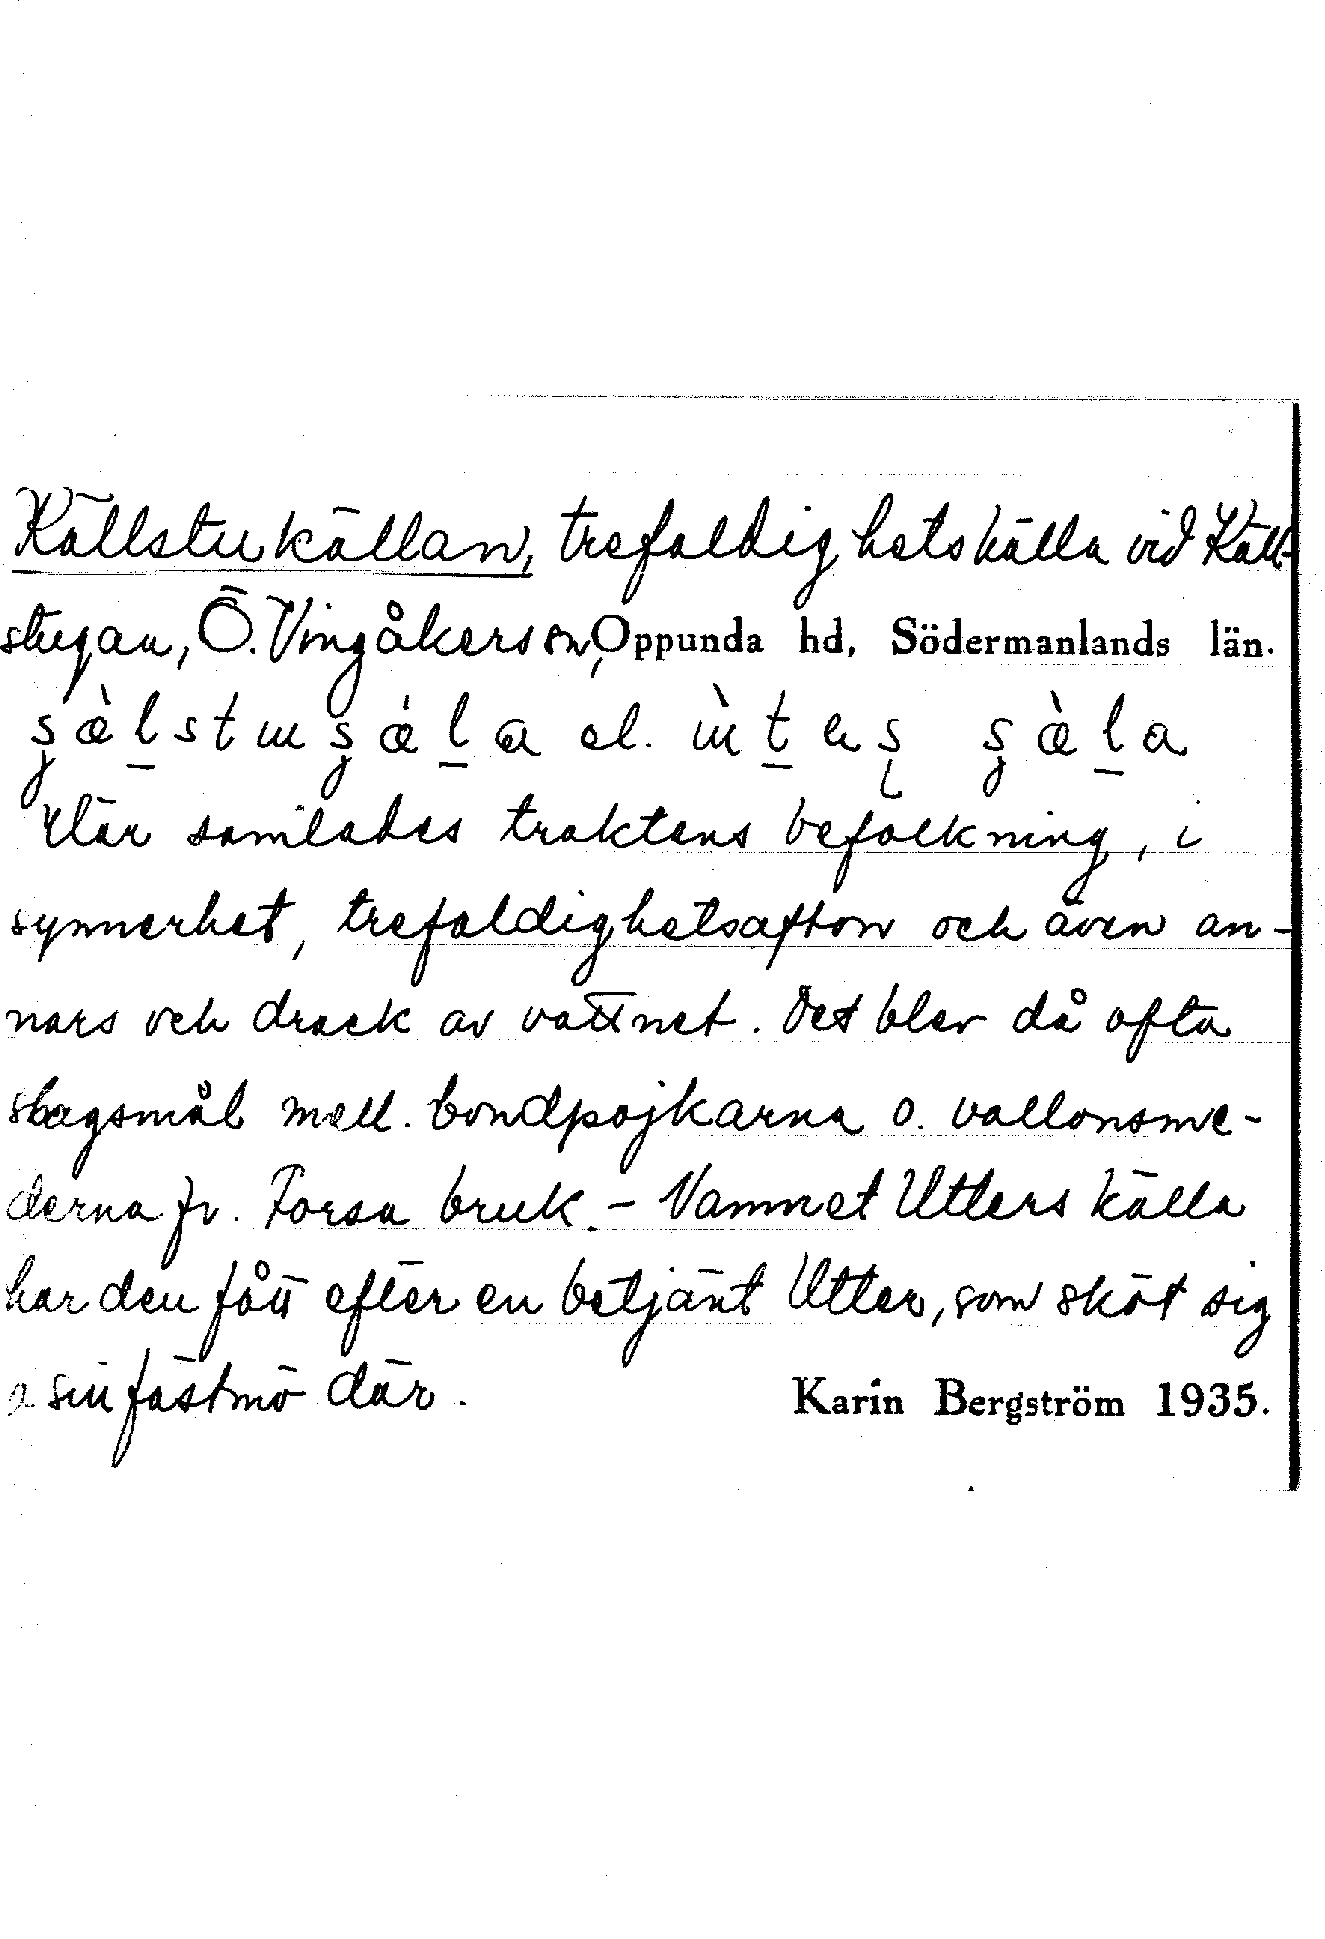 Källstukällan, trefaldighetskälla vid Käll-
stugan, Ö. Vingåkers sn, Oppunda hd, Södermanlands län.
el.
Här samlades traktens befolkning, i
synnerhet, trefaldighetsafton och även an-
nars och drack av vattnet. Det blev då ofta
slagsmål mell. bondpojkarna o. vallonsme-
derna fr. Forsa bruk. – Namnet Utters källa
har den fått efter en betjänt Utter, som sköt sig
o sin fästmö där. Karin Bergström 1935.